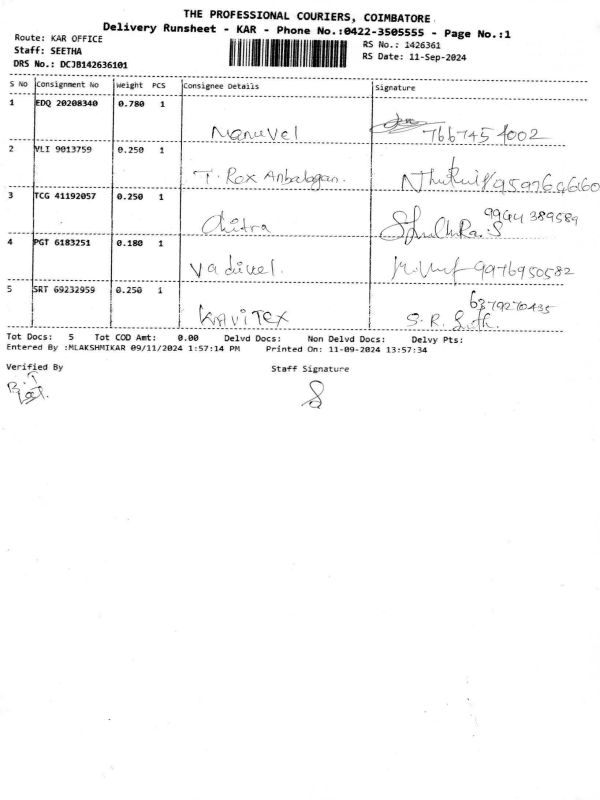 THE PROFESSIONAL COURIERS, COIMBATORE
Delivery Runsheet - KAR - Phone No.:0422-3505555 - Page No.:1
Route: KAR OFFICE
RS No.: 1426361
Staff: SEETHA
RS Date: 11-Sep-2024
DRS No.: DCJB142636101
S No Consignment No Weight PCS Consignee Details Signature
1 EDQ 20208340 0.780 1
Manuvel 7667454002
2 VLI 9013759 0.250 1
T. Rex Anbalagan.
3 TCG 41192057 0.250 1
Chitra 9944389589
4 PGT 6183251 0.180 1
Vadivel. 9976950582
5 SRT 69232959 0.250 1
6379270435
KAVITEX S. R.
Tot Docs: 5 Tot COD Amt: 0.00 Delvd Docs: Non Delvd Docs: Delvy Pts:
Entered By :MLAKSHMIKAR 09/11/2024 1:57:14 PM Printed On: 11-09-2024 13:57:34
Verified By Staff Signature